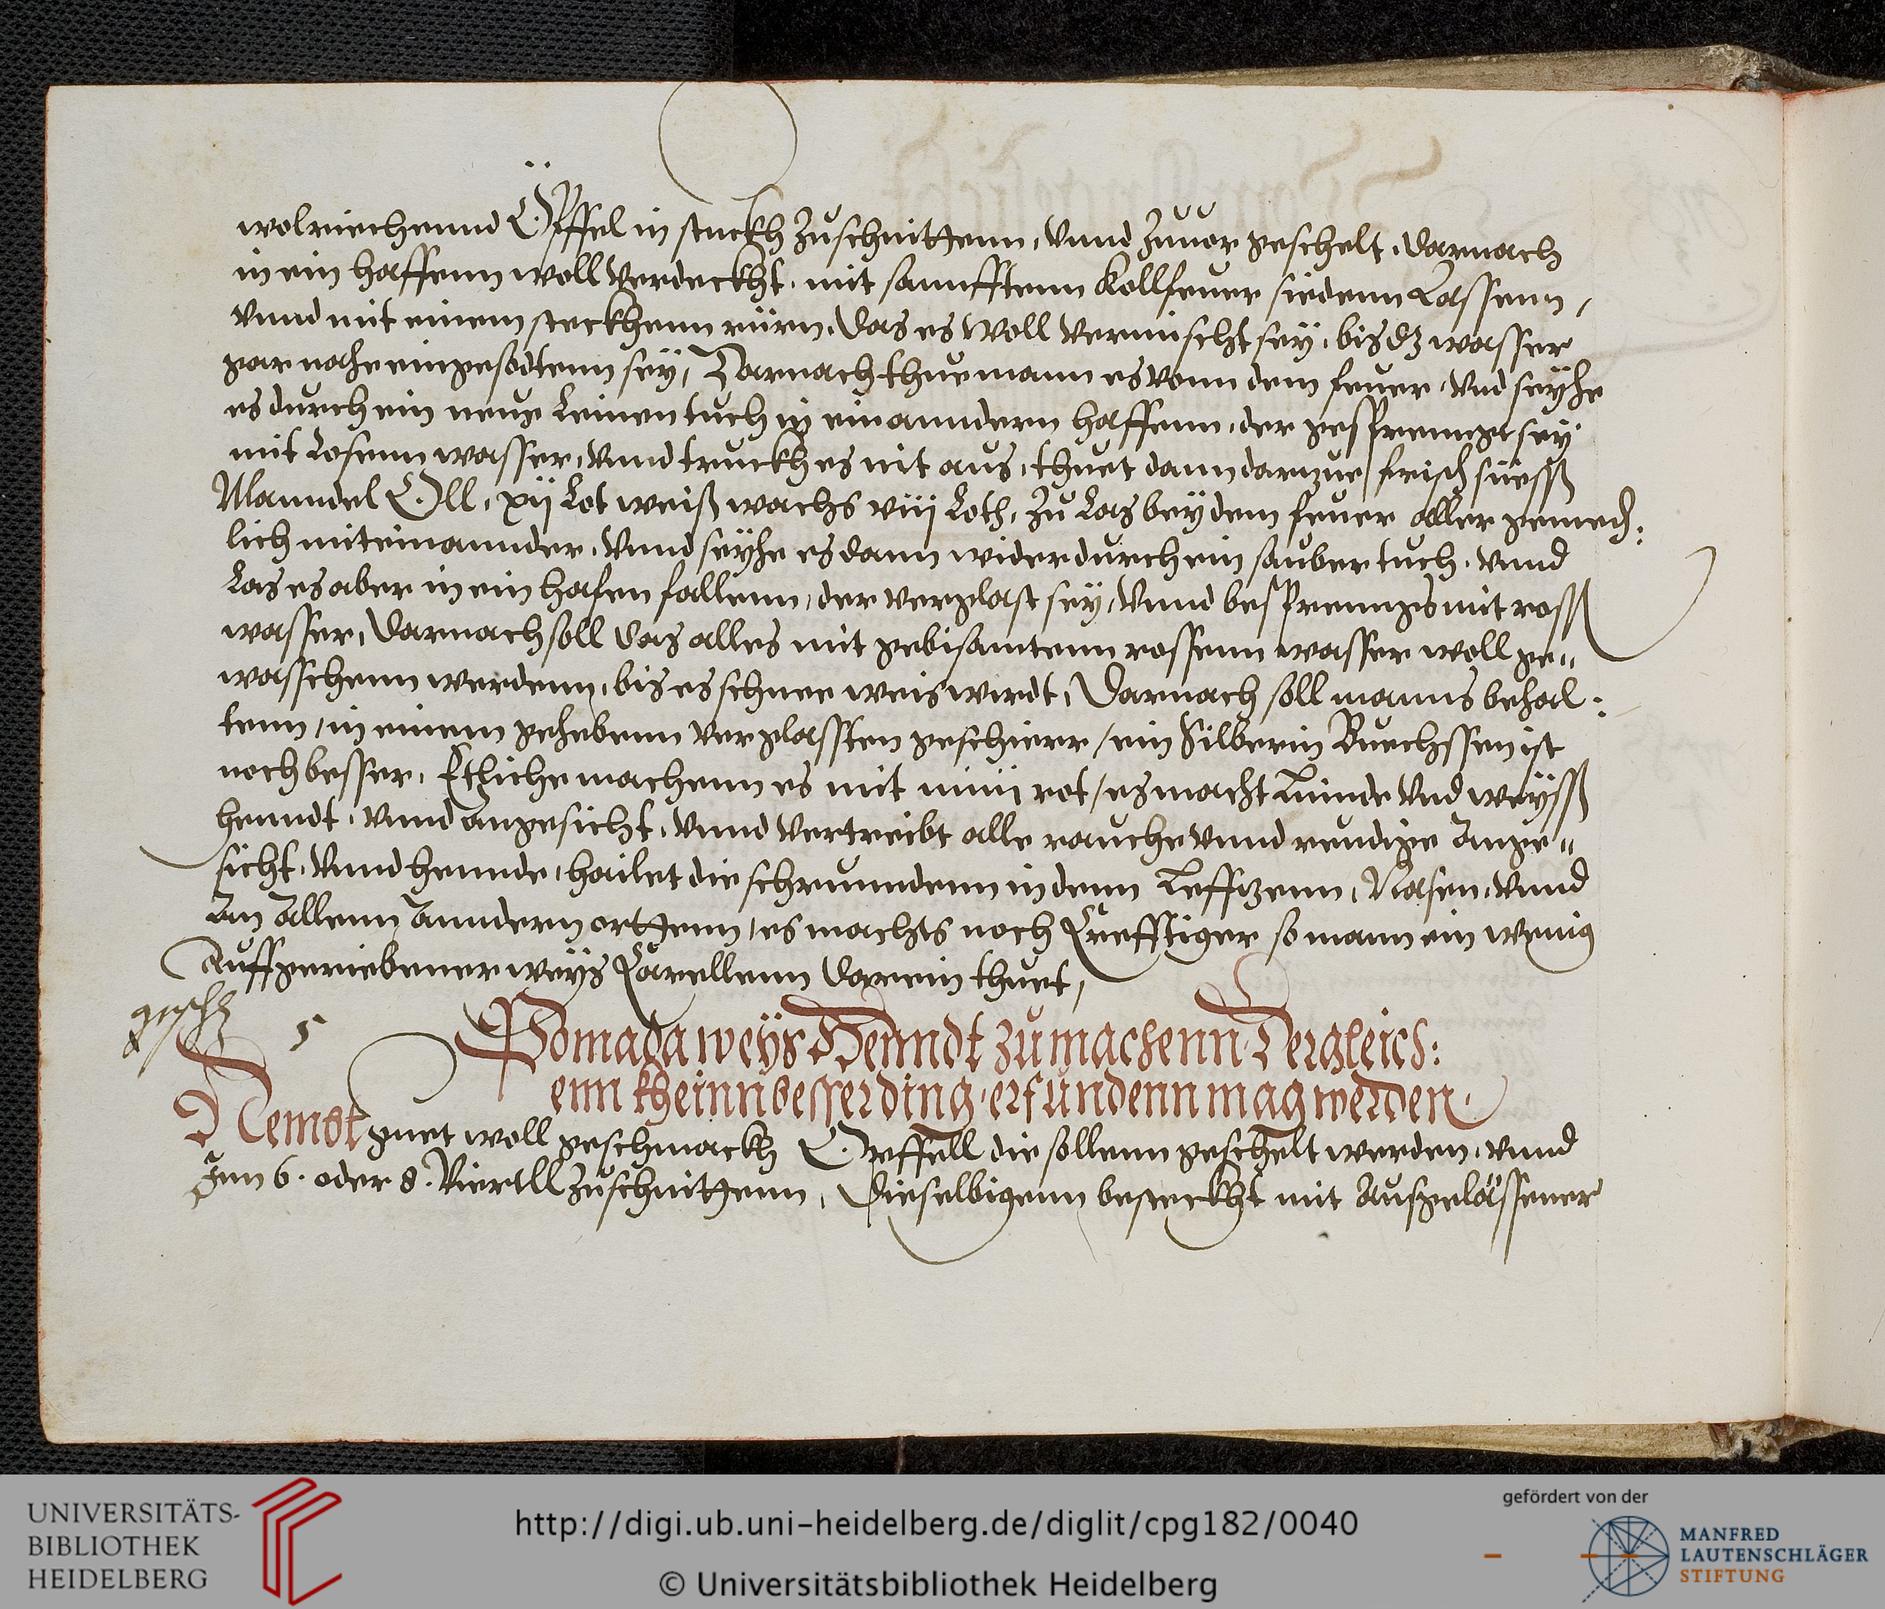 wolriechennd Öpffel in stuckh zuschnittenn, vnnd zuuor geschelt, darnach
in ein haffenn woll verdeckht, mit sannfftenn kollfeuer siedenn Lassenn,
vnnd mit einem steckhenn rürn, das es woll vermischt sey, bis dz wasser
gar nahe eingesodtenn sey, Darnach thue mann es vonn dem feuer, vnd seyhe
es durch ein neug Leinen tuch in ein anndern haffenn, der gesprenngt sey
mit Rosenn wasser, vnnd truckh es nit aus, thuet dann darzue frisch süess
Manndel Öll, xij Lot weiß wachs viij Loth, zu Las bey dem feuer aller gemech:
lich miteinannder, vnnd seyhe es dann wider durch ein sauber tuch, vnnd
Las es aber in ein hafen fallenn, der verglast sey, vnnd besprenngs mit ross
wasser, Darnach soll das alles mit gebisamtenn rossenn wasser woll ge„
wasschenn werdenn, bis es schnee weis wirdt, Darnach soll manns behal:
tenn, in einem gehebenn verglassten geschierr, ein Silberin Buechssen ist
noch besser, Etliche machenn es mit minij rot, es macht Linnde vnd weyss
henndt, vnnd angesicht, vnnd vertreibt alle rauche vnnd reudige Ange„
sicht, vnnd hennde, hailet die schrunndenn in denn Leffzenn, Nasen, vnnd
An Allenn Anndern orttenn, es machts noch Crefftiger so mann ein wenig
Auffgeriebener weys Corellenn darein thuet,
5
Pomada weys Henndt zu machenn Dergleich:
enn kheinn besser ding erfundenn mag werden.
Nembt guet woll geschmackh Öpffell die sollenn geschelt werden, vnnd
Inn 6. oder 8. Viertll zuschnittenn, Dieselbigenn besteckht mit Ausgelässener
UNIVERSITÄTS-
BIBLIOTHEK
HEIDELBERG
http://digi.ub.uni-heidelberg.de/diglit/cpg182/0040
© Universitätsbibliothek Heidelberg
gefördert von der
MANFRED
LAUTENSCHLÄGER
STIFTUNG